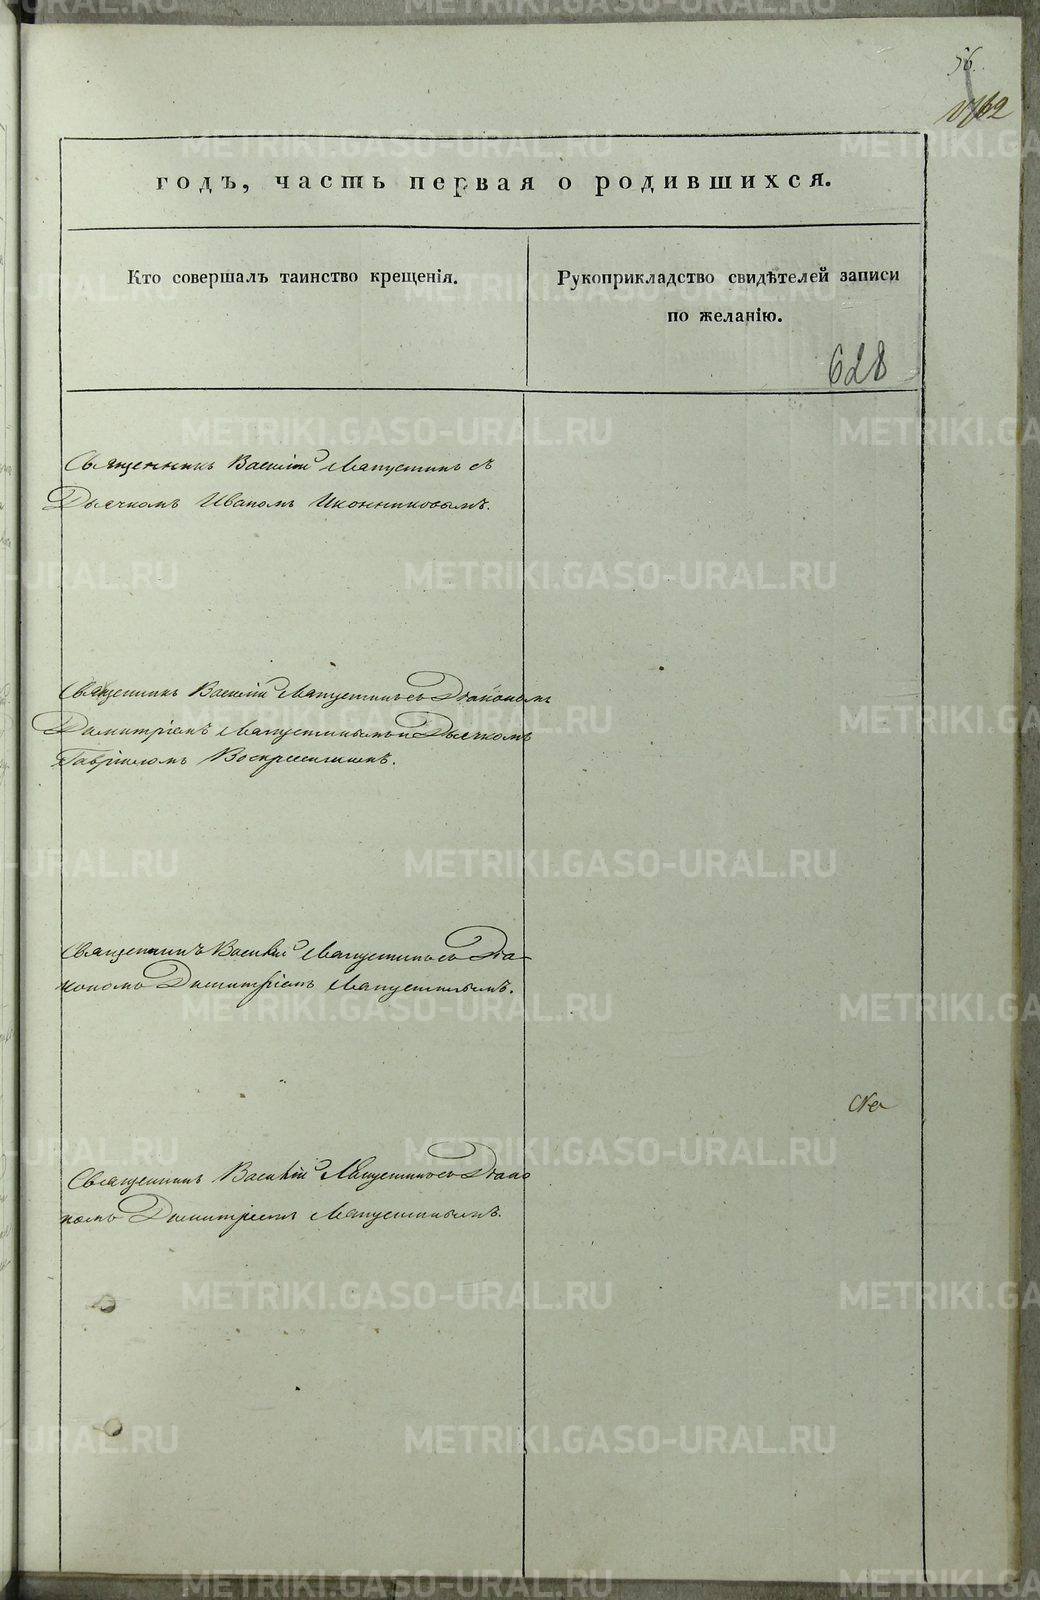 56.
162
годъ, часть первая о родившихся.
Кто совершалъ таинство крещенія.
Рукоприкладство свидѣтелей записи
по желанію.
628
Священникъ Василій Мапустинъ съ
Дьячкомъ Иваномъ Иконниковымъ.
Священникъ Василій Мапустинъ съ Діакономъ
Димитріемъ Мапустинымъ и Дьячкомъ
Гавріиломъ Воскресенскимъ.
Священникъ Василій Мапустинъ съ Діа-
кономъ Димитріемъ Мапустинымъ.
Священникъ Василій Мапустинъ съ Діако
номъ Димитріемъ Мапустинымъ.
METRIKI.GASO-URAL.RU